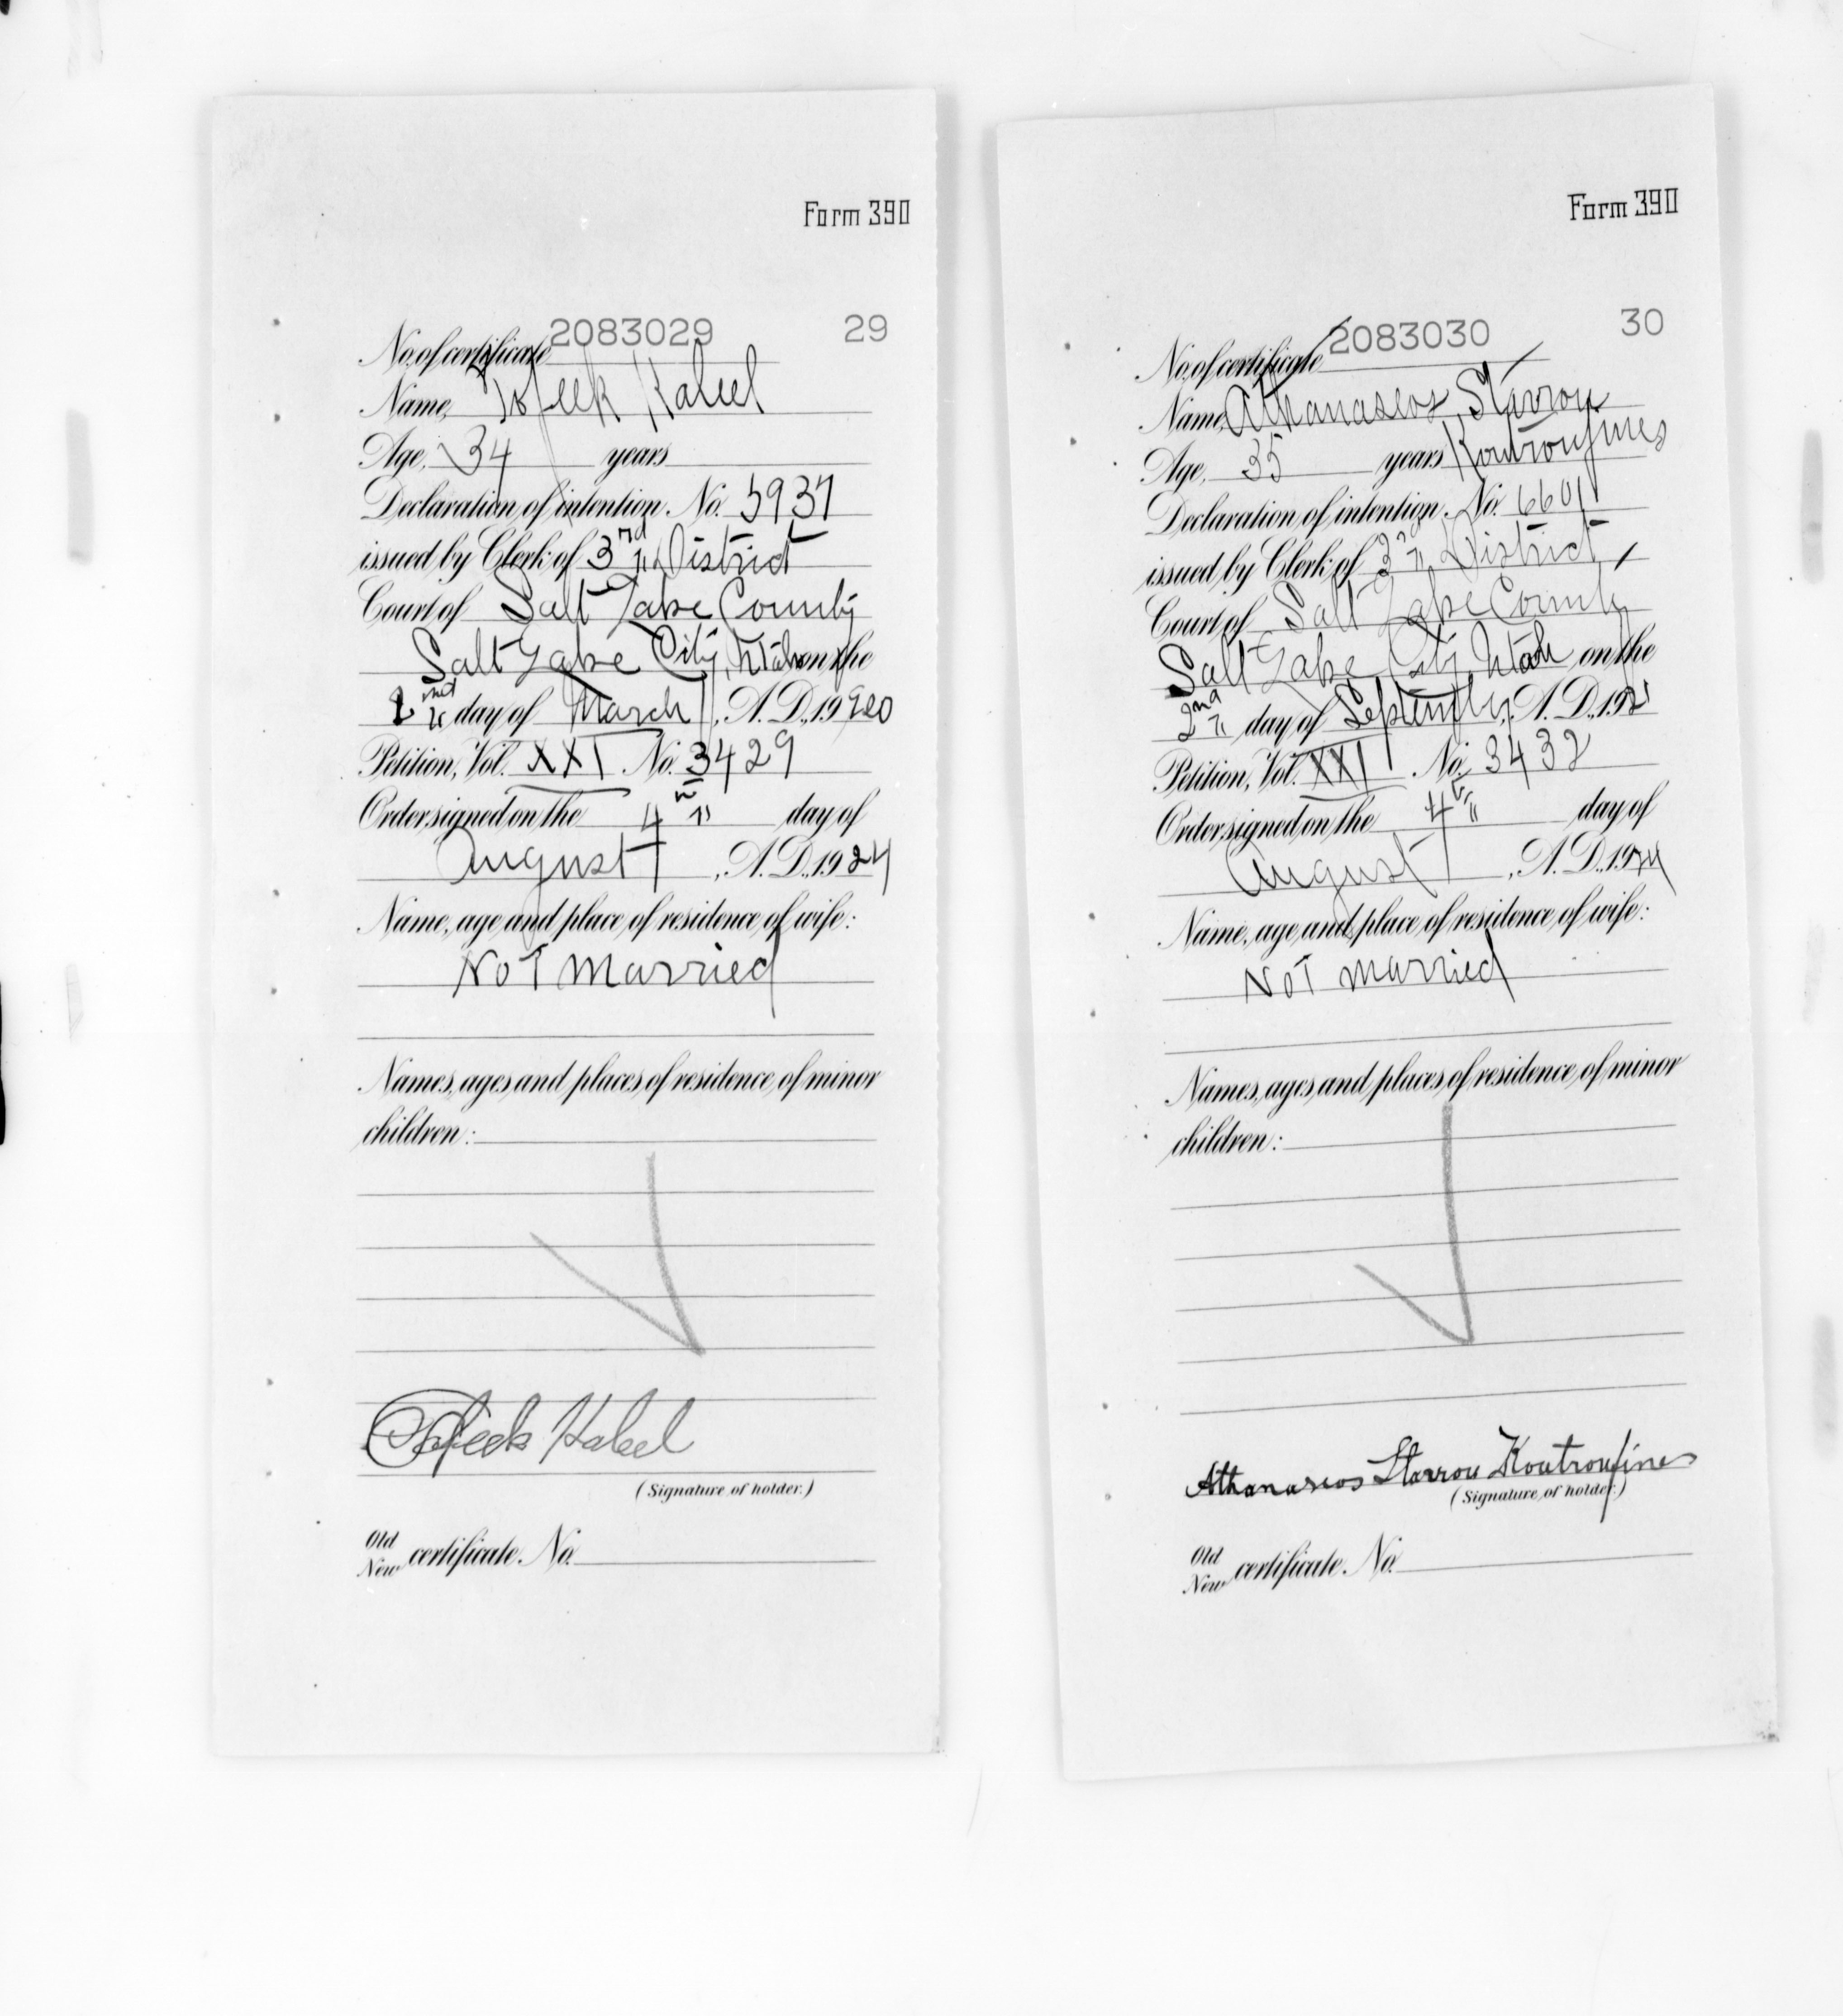 Form 390
No. of certificate 2083029 29
Name, Tofeek Kaleel
Age, 34 years
Declaration of intention No. 5937
issued by Clerk of 3rd District
Court of Salt Lake County
Salt Lake City, Utah on the
2nd day of March, A. D., 19920
Petition, Vol. XXI No. 3429
Order signed on the 4th day of
August, A. D., 1924
Name, age and place of residence of wife:
Not Married
Names, ages and places of residence of minor
children:
Tofeek Kaleel
(Signature of holder.)
Old
New certificate No.
Form 390
No. of certificate 2083030 30
Name, Athanaseos Stavrou
Age, 35 years Koutroufines
Declaration of intention No. 6601
issued by Clerk of 3rd District
Court of Salt Lake County
Salt Lake City Utah on the
2nd day of September, A. D., 1921
Petition, Vol. XXI No. 3432
Order signed on the 4th day of
August, A. D., 1924
Name, age and place of residence of wife:
Not Married
Names, ages and places of residence of minor
children:
Athanaseos Stavrou Koutroufines
(Signature of holder.)
Old
New certificate No.